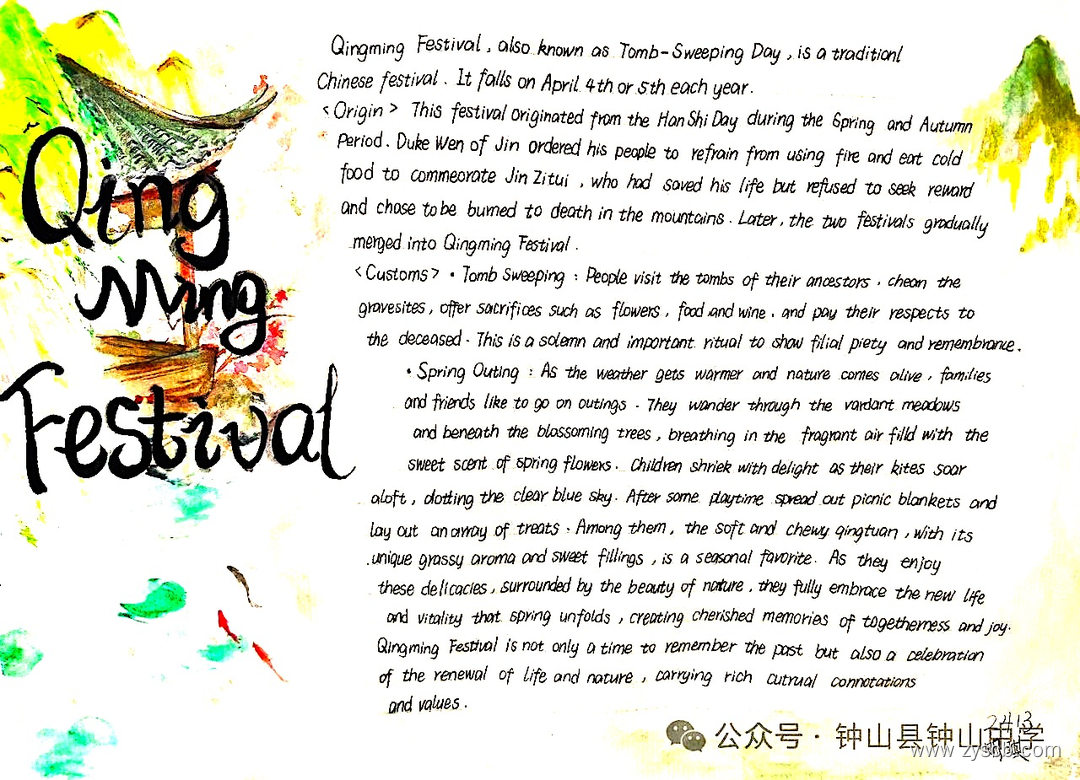 Qing
Ming
Festival
Qingming Festival, also known as Tomb-Sweeping Day, is a traditionl
Chinese festival. It falls on April 4th or 5th each year.
<Origin> This festival originated from the Han Shi Day during the Spring and Autumn
Period. Duke Wen of Jin ordered his people to refrain from using fire and eat cold
food to commeorate Jin Zitui, who had saved his life but refused to seek reward
and chose to be burned to death in the mountains. Later, the two festivals gradually
merged into Qingming Festival.
<Customs> • Tomb Sweeping : People visit the tombs of their ancestors, chean the
gravesites, offer sacrifices such as flowers, food and wine, and pay their respects to
the deceased. This is a solemn and important ritual to show filial piety and remembrance.
• Spring Outing : As the weather gets warmer and nature comes alive, families
and friends like to go on outings. They wander through the vardant meadows
and beneath the blossoming trees, breathing in the fragrant air filld with the
sweet scent of spring flowers. Children shriek with delight as their kites soar
aloft, dotting the clear blue sky. After some playtime spread out picnic blankets and
lay out an array of treats. Among them, the soft and chewy qingtuan, with its
unique grassy aroma and sweet fillings, is a seasonal favorite. As they enjoy
these delicacies, surrounded by the beauty of nature, they fully embrace the new life
and vitality that spring unfolds, creating cherished memories of togetherness and joy.
Qingming Festival is not only a time to remember the past but also a celebration
of the renewal of life and nature, carrying rich cutrual connotations
and values.
2413
公众号 · 钟山县钟山中学